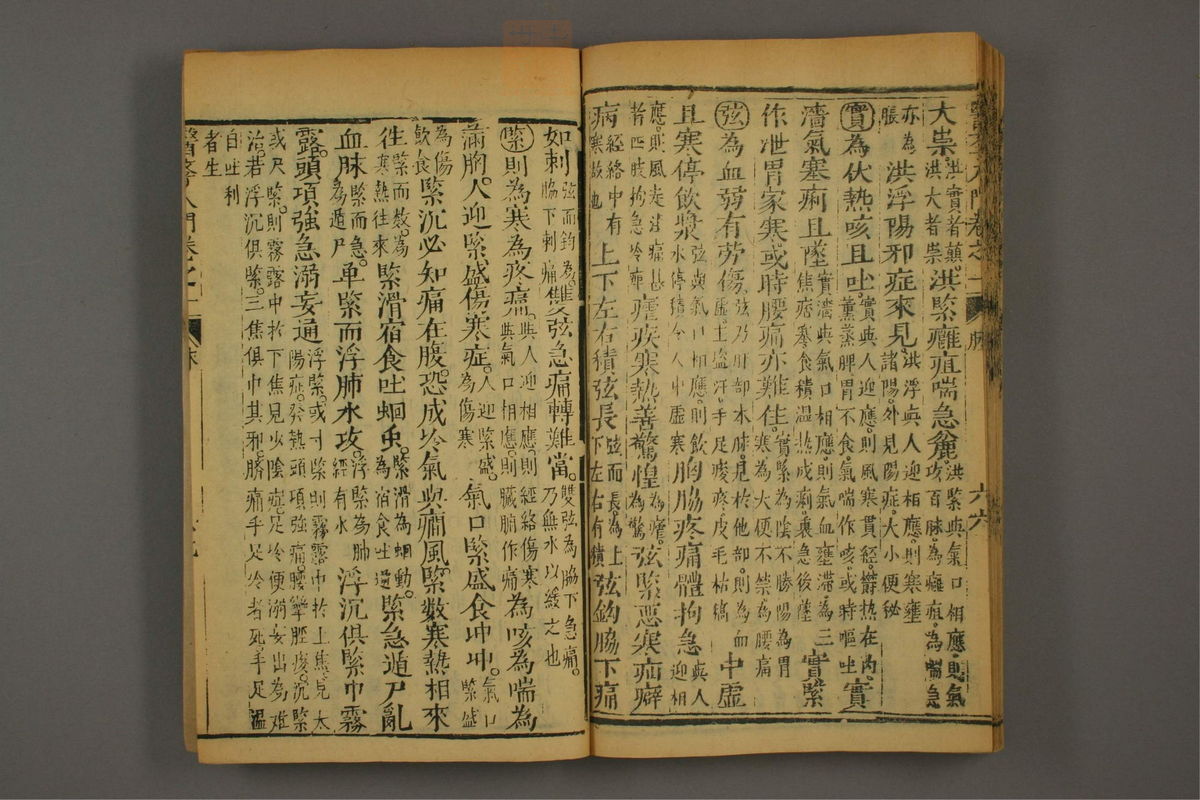 醫學入門卷之一 脉 六六
大祟洪實者顛。洪大者祟洪緊癰疽喘急麄洪緊與氣口相應則氣攻百脉。為癰疽。為喘急
亦為脹洪浮陽邪症來見洪浮與人迎相應。則寒壅諸陽。外見陽症。大小便秘
實為伏熱咳且吐實與人迎應。則風寒貫經。欝熱在內。薰蒸脾胃不食。氣喘作咳。或時嘔吐實
濇氣塞痢且墜實濇與氣口相應則氣血壅滯。為三焦痞寒食積温熱成痢。裏急後墜實緊
作泄胃家寒或時腰痛亦難住實緊為陰不勝陽為胃寒。為大便不禁。為腰痛
弦為血弱有勞傷弦乃肝部本脉。見於他部。則為血虛。主盜汗。手足痠疼。皮毛枯稿中虛
且寒停飲漿弦與氣口相應。則飲水停積令人中虛寒胸脇疼痛體拘急與人迎相
應。則風走注痛甚者四肢拘急冷痺瘧疾寒熱善驚惶為瘧。為驚弦緊惡寒疝癖
病經絡中有寒故也上下左右積弦長弦而長。為上下左右有積弦鈎脇下痛
如刺弦而鈎為。脇下刺痛雙弦急痛轉難當雙弦為脇下急痛。乃無水以緩之也
緊則為寒為疼痛與人迎相應。則經絡傷寒與氣口相應。則臟腑作痛為咳為喘為
滿胸人迎緊盛傷寒症。人迎緊盛。為傷寒氣口緊盛食冲冲。氣口緊盛
為傷飲食緊沉必知痛在腹。恐成冷氣與痛風。緊數寒熱相來
往緊而數。為寒熱往來緊滑宿食吐蛔虫。緊滑為蛔動。為宿食吐逆緊急遁尸亂
血脉緊而急。為遁尸單緊而浮肺水攻。浮緊為肺經有水浮沉俱緊中霧
露。頭項強急溺妄通浮緊。或寸緊則霧露中於上焦。見太陽症。發熱頭項強痛。腰攣脛痠。沉緊
或尺緊。則霧露中於下焦見少陰症。足冷便溺妄出為难治若浮沉俱緊。三焦俱中其邪。臍痛手足冷者死。手足温
自吐利者生
醫學入門卷之一 脉